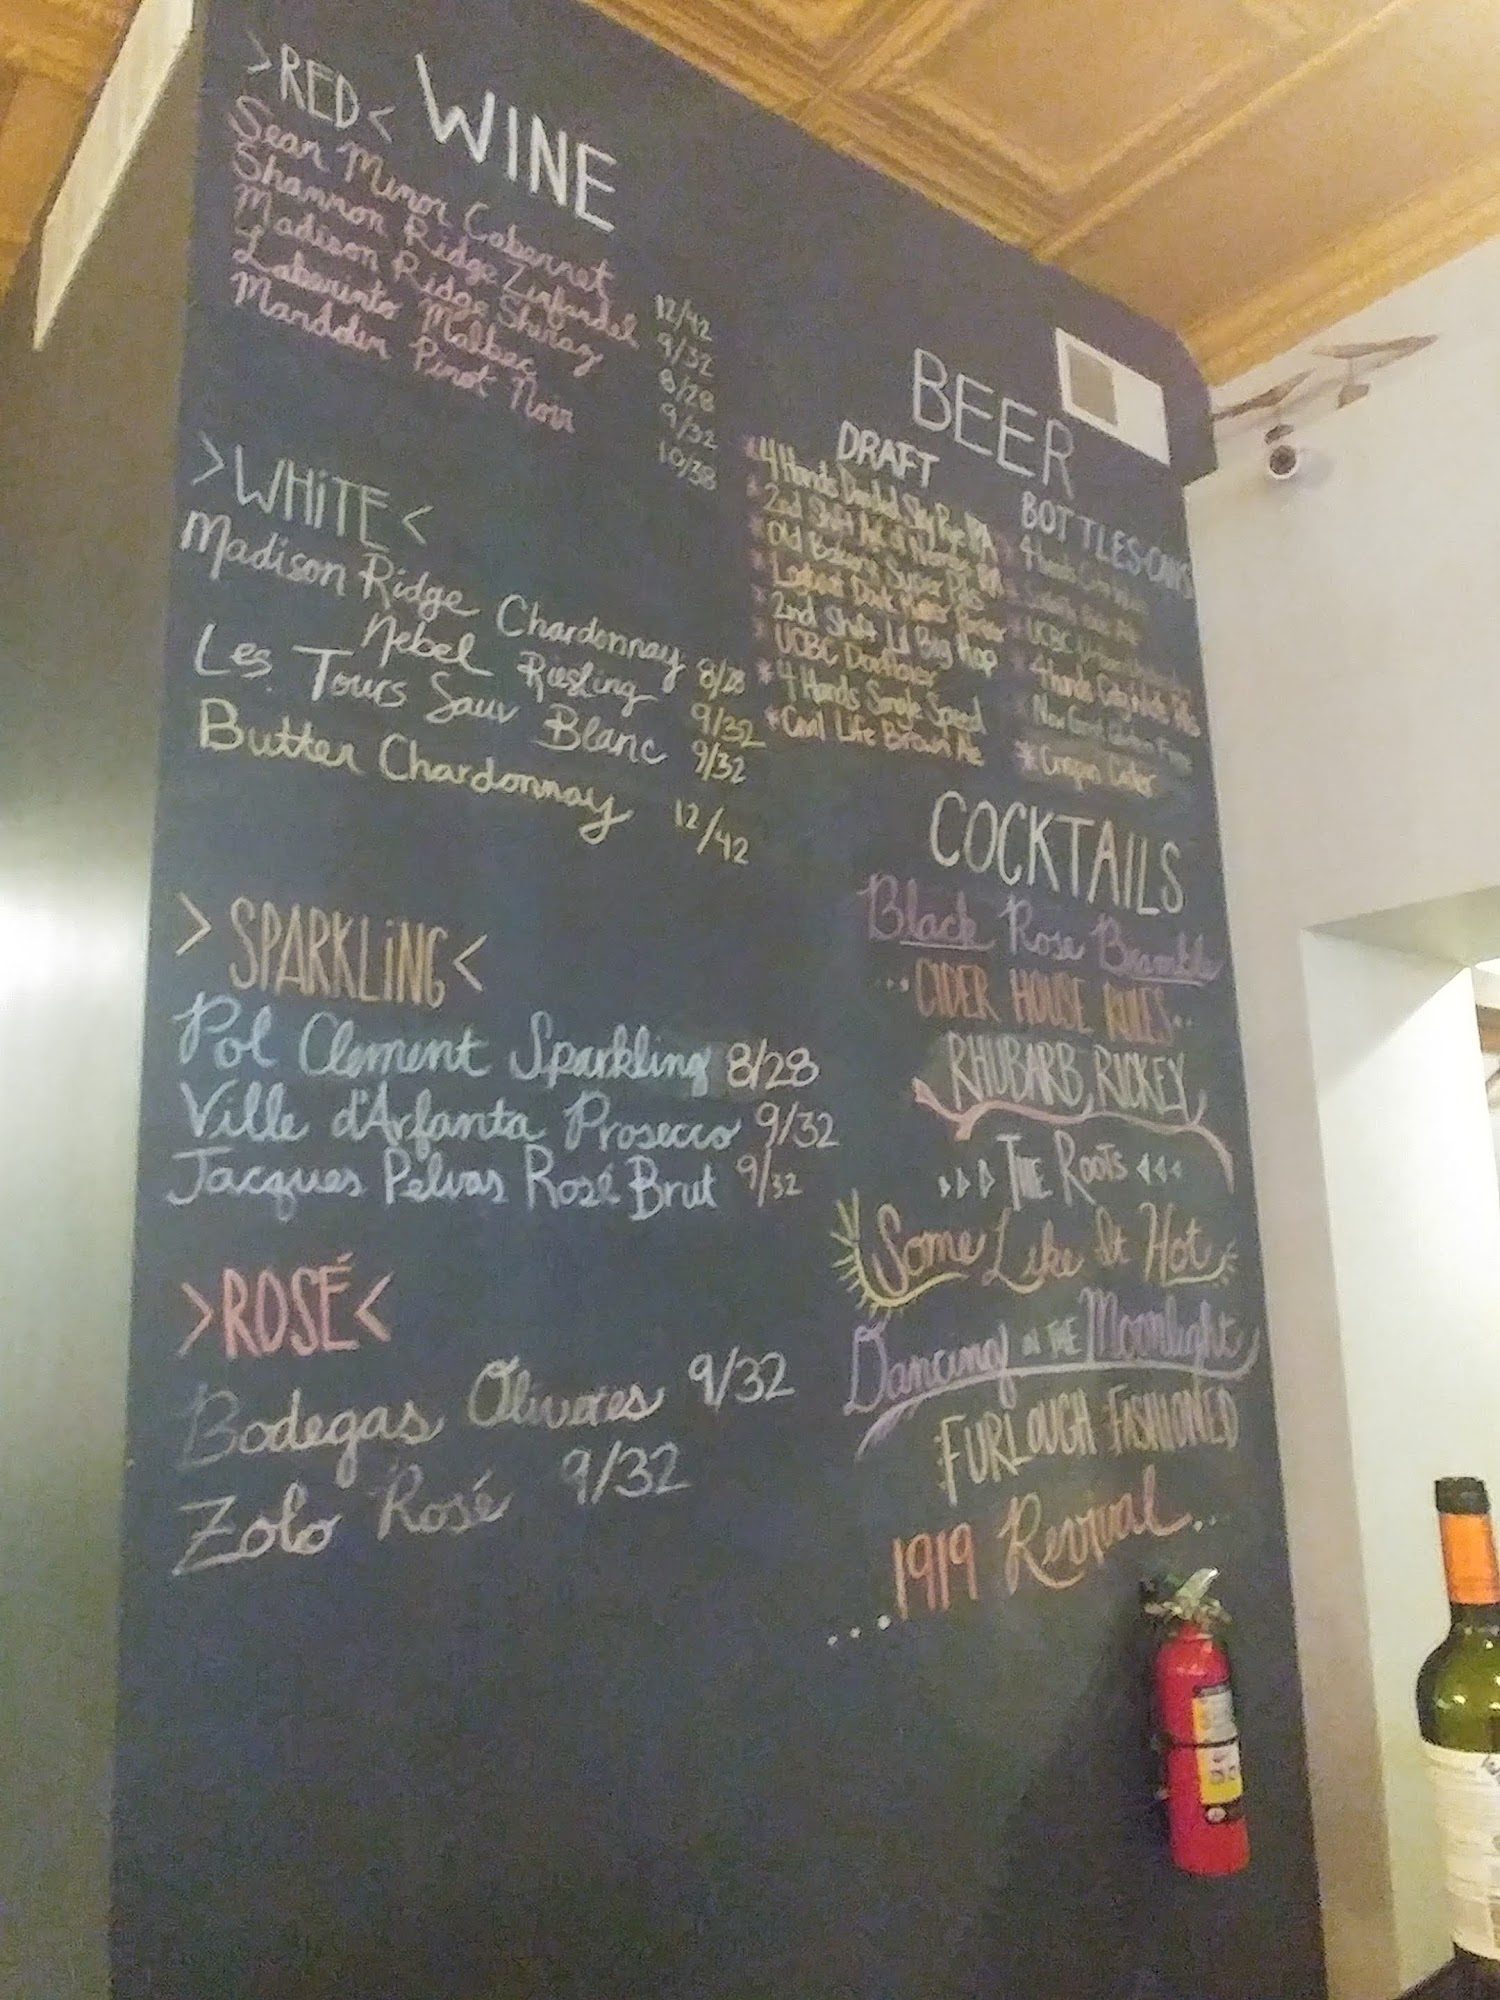 >RED< WINE
Sean Minor Cabernet 12/42
Shannon Ridge Zinfandel 9/32
Madison Ridge Shiraz 8/28
Laberinto Malbec 9/32
Mandolin Pinot Noir 10/38
>WHITE<
Madison Ridge Chardonnay 8/28
Nebel Riesling 9/32
Les Tours Sauv Blanc 9/32
Butter Chardonnay 12/42
>SPARKLING<
Pol Clement Sparkling 8/28
Ville d'Arfanta Prosecco 9/32
Jacques Pelvas Rosé Brut 9/32
>ROSÉ<
Bodegas Oliveres 9/32
Zolo Rosé 9/32
BEER
DRAFT
*4 Hands Rye IPA
*2nd Shift
*Old Bakery Super Pils
*Dark
*2nd Shift Lil Big Hop
*UCBC
*4 Hands Single Speed
*Civil Life Brown Ale
BOTTLES-CANS
4 Hands City Wide
*UCBC
*4 Hands City Wide
*Crispin Cider
COCKTAILS
Black Rose Bramble
...CIDER HOUSE RULES...
RHUBARB RICKEY
THE ROOTS
Some Like It Hot
Dancing IN THE Moonlight
FURLOUGH FASHIONED
...1919 Revival...